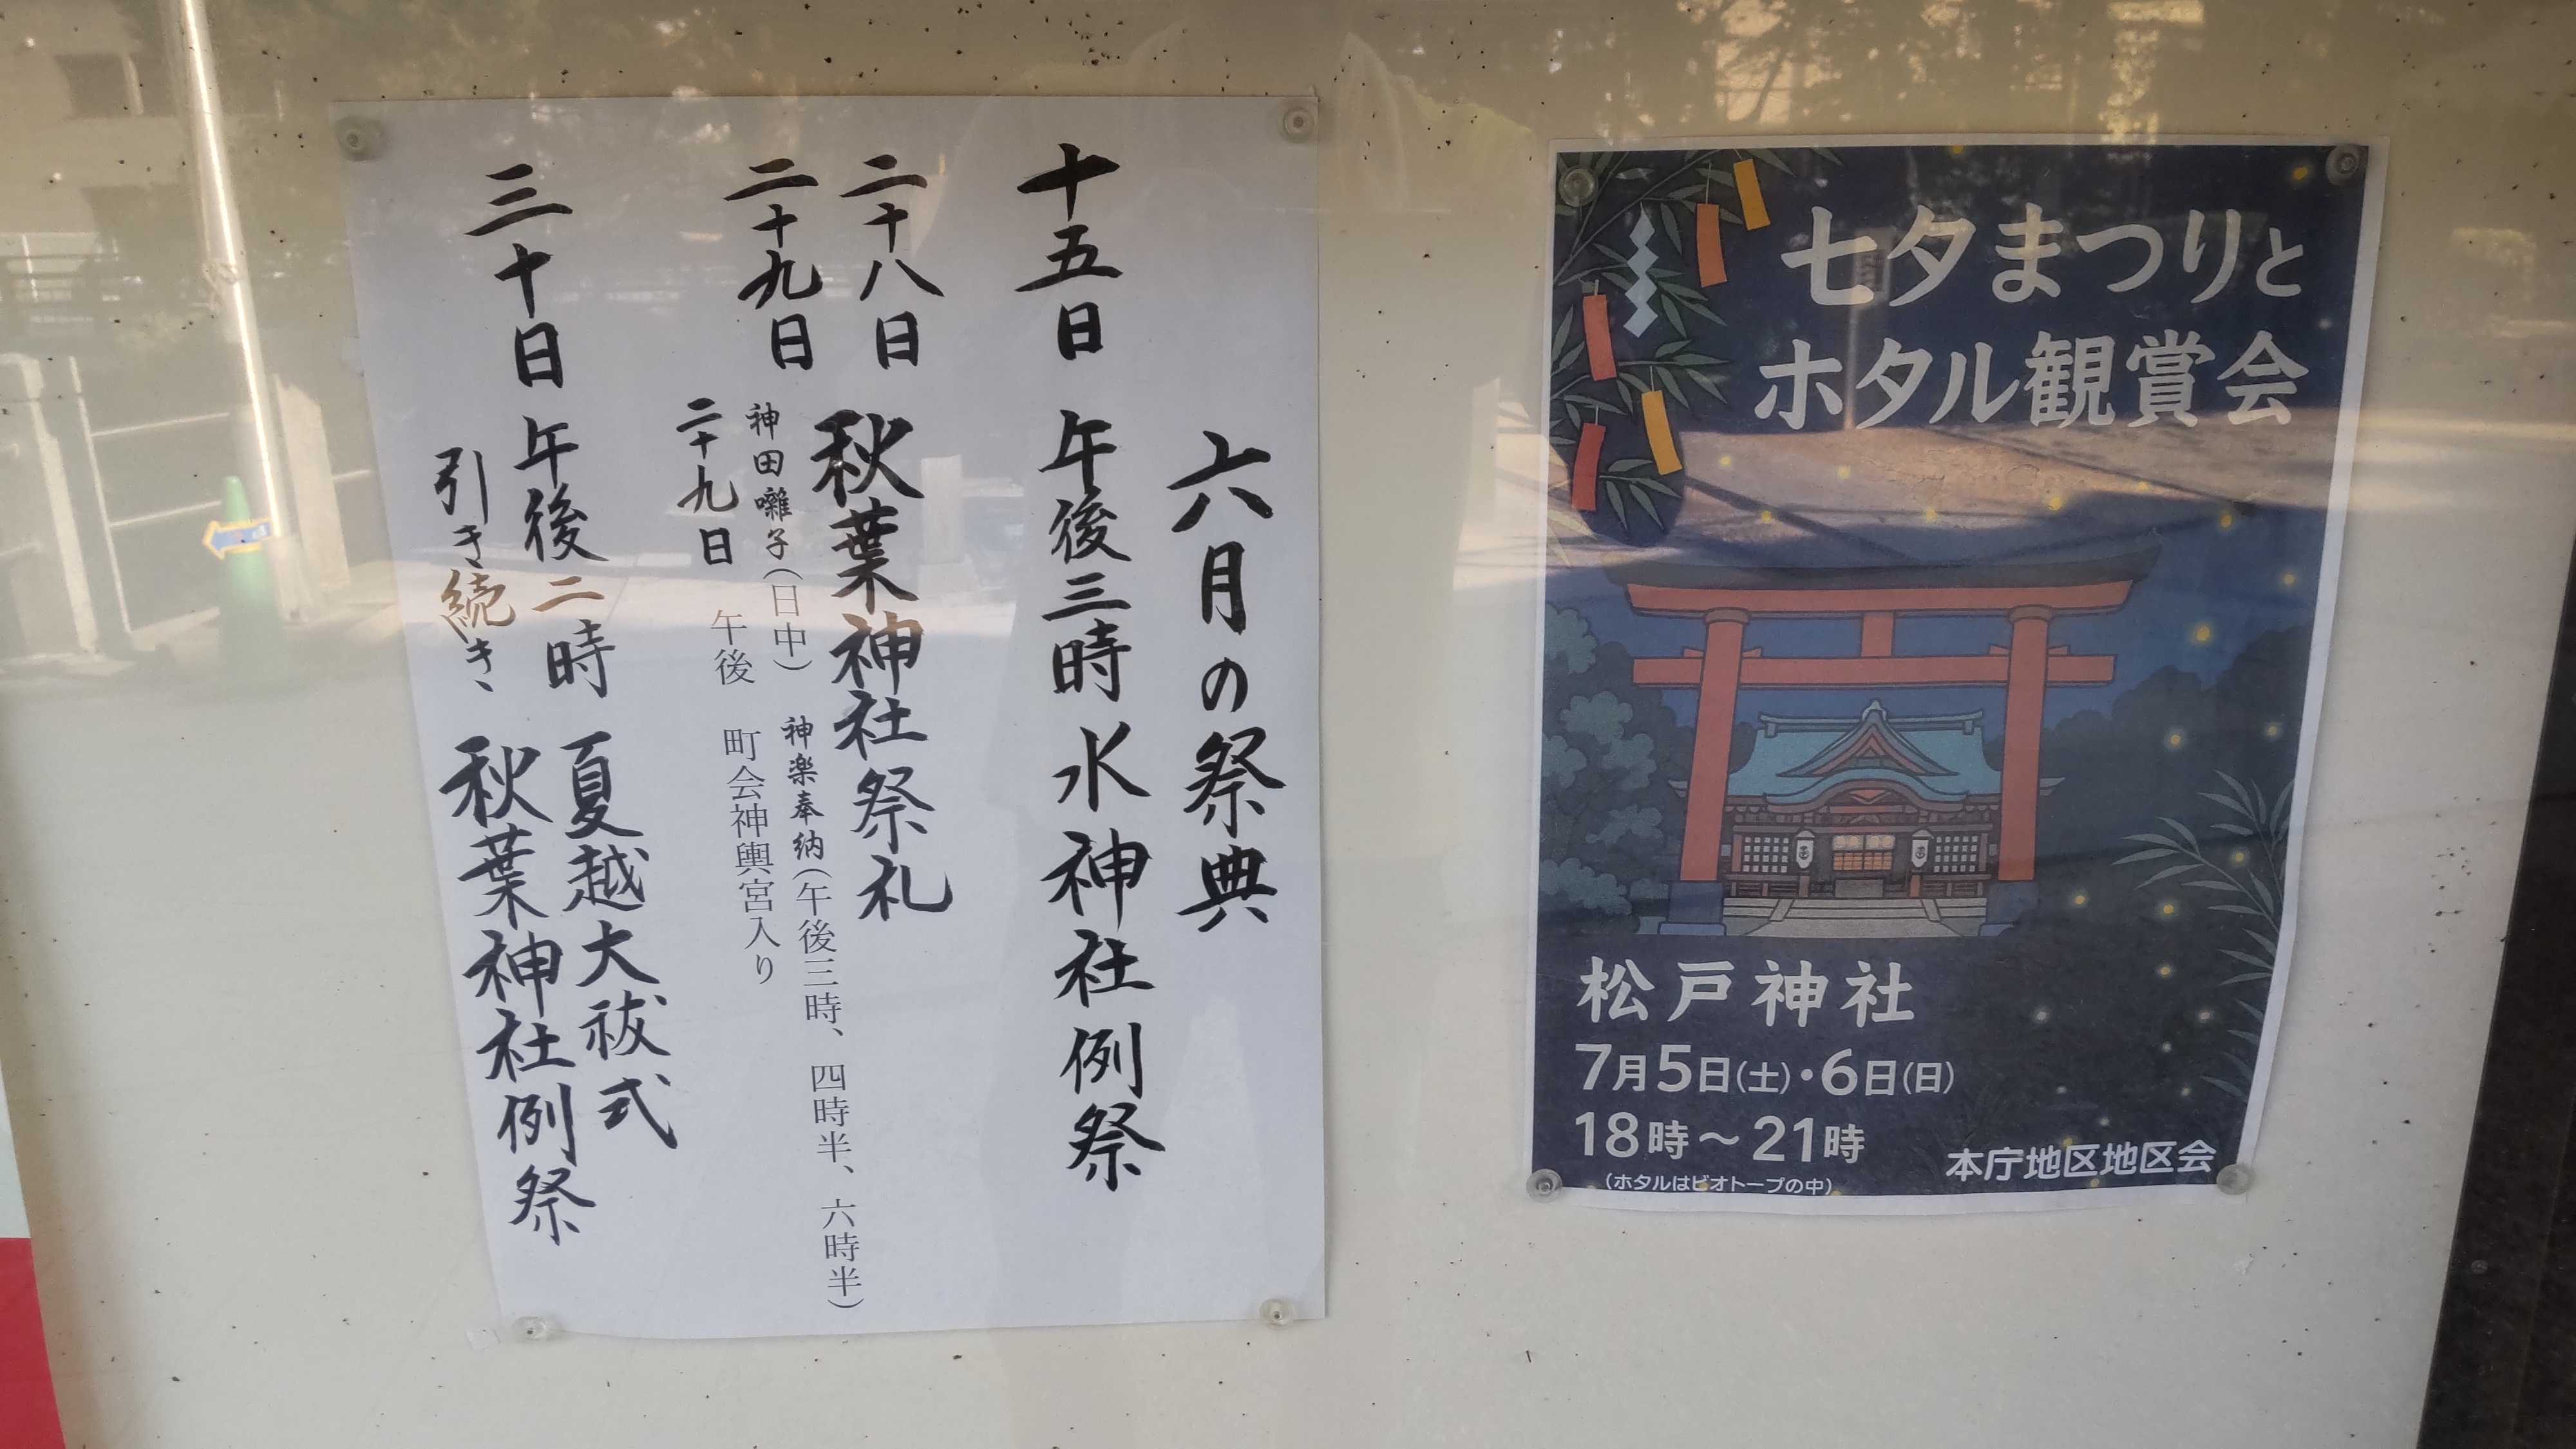 六月の祭典
十五日 午後三時 水神社例祭
二十八日 秋葉神社祭礼
二十九日
神田囃子(日中) 神楽奉納(午後三時、四時半、六時半)
二十九日 午後 町会神輿宮入り
三十日 午後二時 夏越大祓式
引き続き、秋葉神社例祭
七夕まつりと
ホタル観賞会
松戸神社
7月5日(土)・6日(日)
18時～21時
(ホタルはビオトープの中)
本庁地区地区会